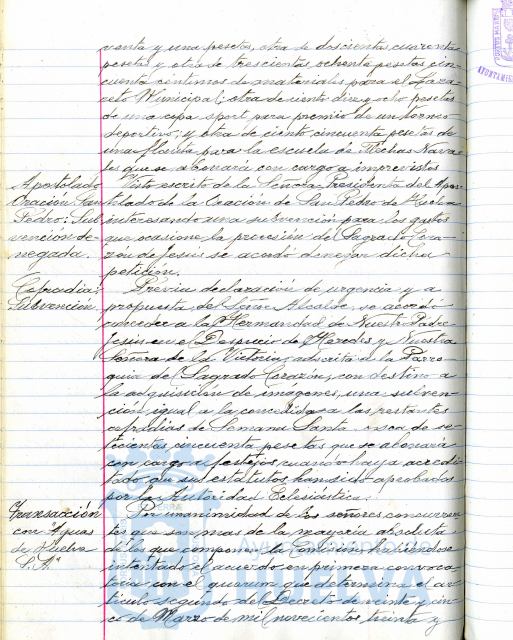 venta y una pesetas, otra de doscientas cuarenta
pesetas y otra de trescientas ochenta pesetas cin-
cuenta céntimos de materiales para el Laza-
reto Municipal; otra de ciento diez y ocho pesetas
de una copa sport para premio de un torneo
deportivo; y otra de ciento cincuenta pesetas de
una flauta para la escuela de Flechas Nava-
les que se abonará con cargo a imprevistos
Apostolado
Oración San
Pedro: Sub
vención de-
negada.
Visto escrito de la Señora Presidenta del Apos-
tolado de la Oración de San Pedro de Huelva
interesando una subvención para los gastos
que ocasione la procesión del Sagrado Cora-
zón de Jesús se acordó denegar dicha
petición.
Cofradía:
Subvención.
Previa declaración de urgencia y a
propuesta del Señor Alcalde, se acordó
conceder a la Hermandad de Nuestro Padre
Jesús en el Desprecio de Herodes y Nuestra
Señora de la Victoria, adscrita de la Parro-
quia del Sagrado Corazón, con destino a
la adquisición de imágenes, una subven-
ción igual a la concedida a las restantes
cofradías de Semana Santa o sea de se-
tecientas cincuenta pesetas que se abonará
con cargo a festejos cuando haya acredi-
tado que sus estatutos han sido aprobados
por la Autoridad Eclesiástica.
Transacción
con "Aguas
de Huelva
S.A."
Por unanimidad de los señores concurren-
tes que son mas de la mayoría absoluta
de los que componen la Comisión habiéndose
intentado el acuerdo en primera convoca-
toria con el quorum que determina el ar-
tículo segundo del Decreto de veinte y cin-
co de Marzo de mil novecientos treinta y
AYUNTAMIE
HUELVA